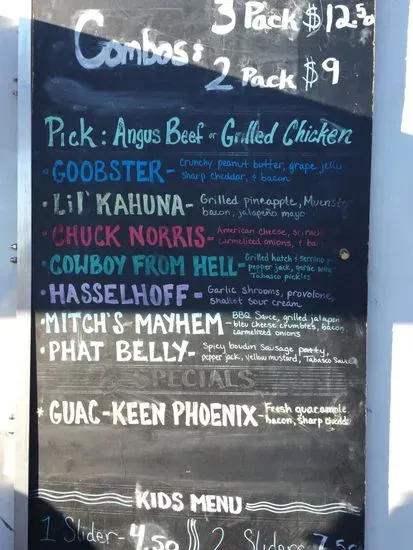 3 Pack $12.50
Combos:
2 Pack $9
Pick: Angus Beef or Grilled Chicken
• GOOBSTER - Crunchy peanut butter, grape jelly
sharp cheddar, & bacon
• LiL' KAHUNA - Grilled pineapple, Muenster
bacon, jalapeño mayo
• CHUCK NORRIS - American cheese, sriracha
carmelized onions, & ba
• COWBOY FROM HELL - Grilled hatch & serrano
pepper jack, garlic
Tabasco pickles
• HASSELHOFF - Garlic shrooms, provolone,
shallot sour cream
• MITCH'S MAYHEM - BBQ Sauce, grilled jalapen
bleu cheese crumbles, bacon
carmelized onions
• PHAT BELLY - Spicy boudin Sausage patty,
pepper jack, yellow mustard, Tabasco Sauce
SPECIALS
* GUAC-KEEN PHOENIX - Fresh guacamole
bacon, sharp chedda
KIDS MENU
1 Slider - 4.50 2 Sliders 7.50